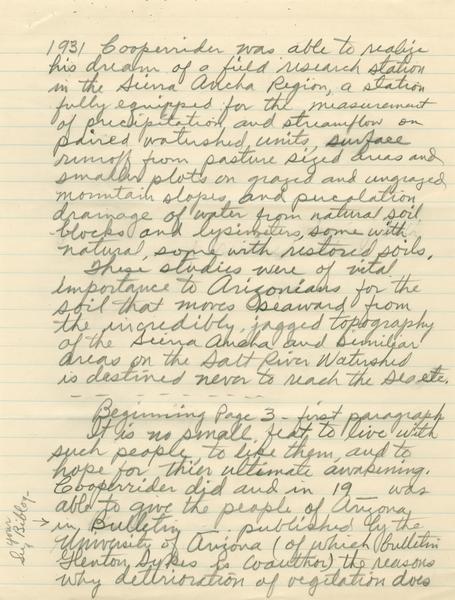 1931 Cooperrider was able to realize
his dream of a field research station
in the Sierra Ancha Region, a station
fully equipped for the measurement
of precipitation and streamflow on
paired watershed units, surface
runoff from pasture sized areas and
smaller plots on grazed and ungrazed
mountain slopes, and percolation,
drainage of water from natural soil
blocks and lysimeters, some with
natural, some with restored soils.
These studies were of vital
importance to Arizonians for the
soil that moves seaward from
the incredibly jagged topography
of the Sierra Ancha and similiar
areas on the Salt River Watershed
is destined never to reach the Sea etc.
Beginning Page 3 - first paragraph
It is no small feat to live with
such people, to like them, and to
hope for thier ultimate awakening.
Cooperrider did and in 19__ was
able to give the people of Arizona
in Bulletin __ published by the
University of Arizona (of which bulletin
Glenton Sykes is coauthor) the reasons
why deterioration of vegetation does
your
Bibliog-